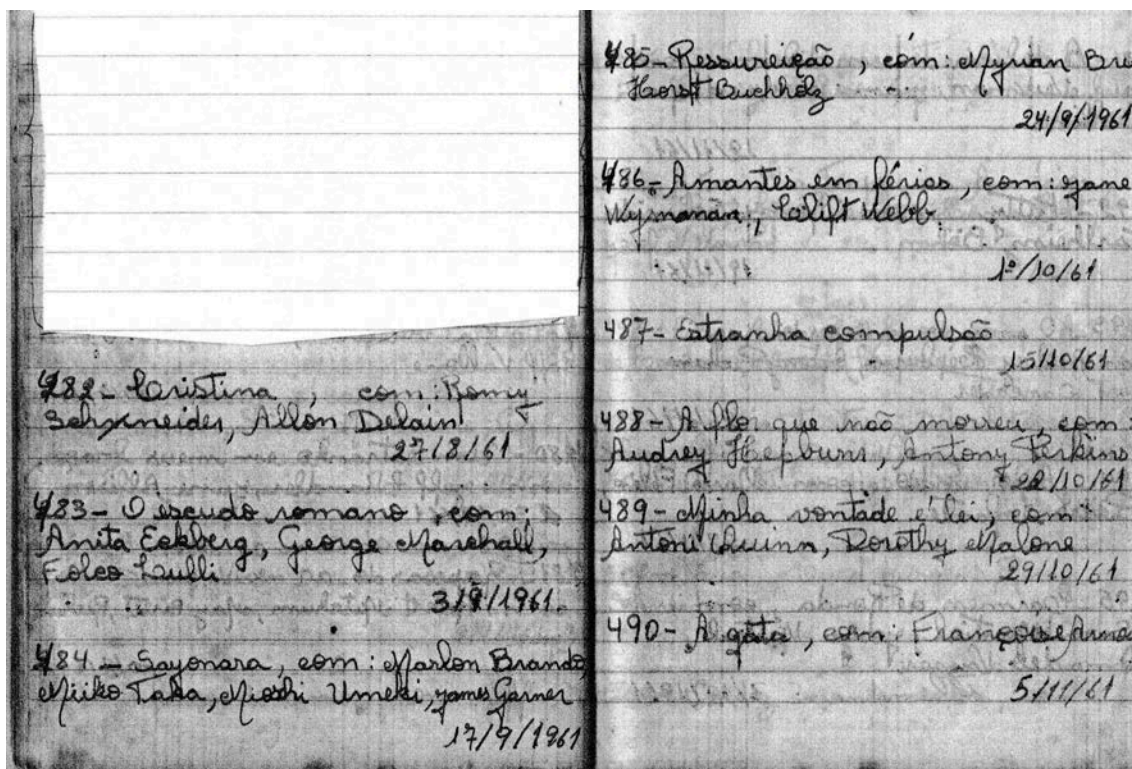 482 - Cristina, com: Romy
Schxneider, Allon Delain
27/8/61
483 - O escudo romano, com:
Anita Eckberg, George Marchall,
Folco Lulli
3/9/1961
484 - Sayonara, com: Marlon Brando,
Miiko Taka, Mioshi Umeki, James Garner
17/9/1961
485 - Ressureição, com: Myrian Bru
Horst Buchholz
24/9/1961
486 - Amantes em férias, com: Jane
Clift Webb
1º/10/61
487 - Estranha compulsão
15/10/61
488 - A flor que não morreu, com:
Audrey Hepburn, Antony Perkins
22/10/61
489 - Minha vontade é lei, com
Antoni Quinn, Dorothy Malone
29/10/61
490 - A gata, com: Françoise Arno
5/11/61